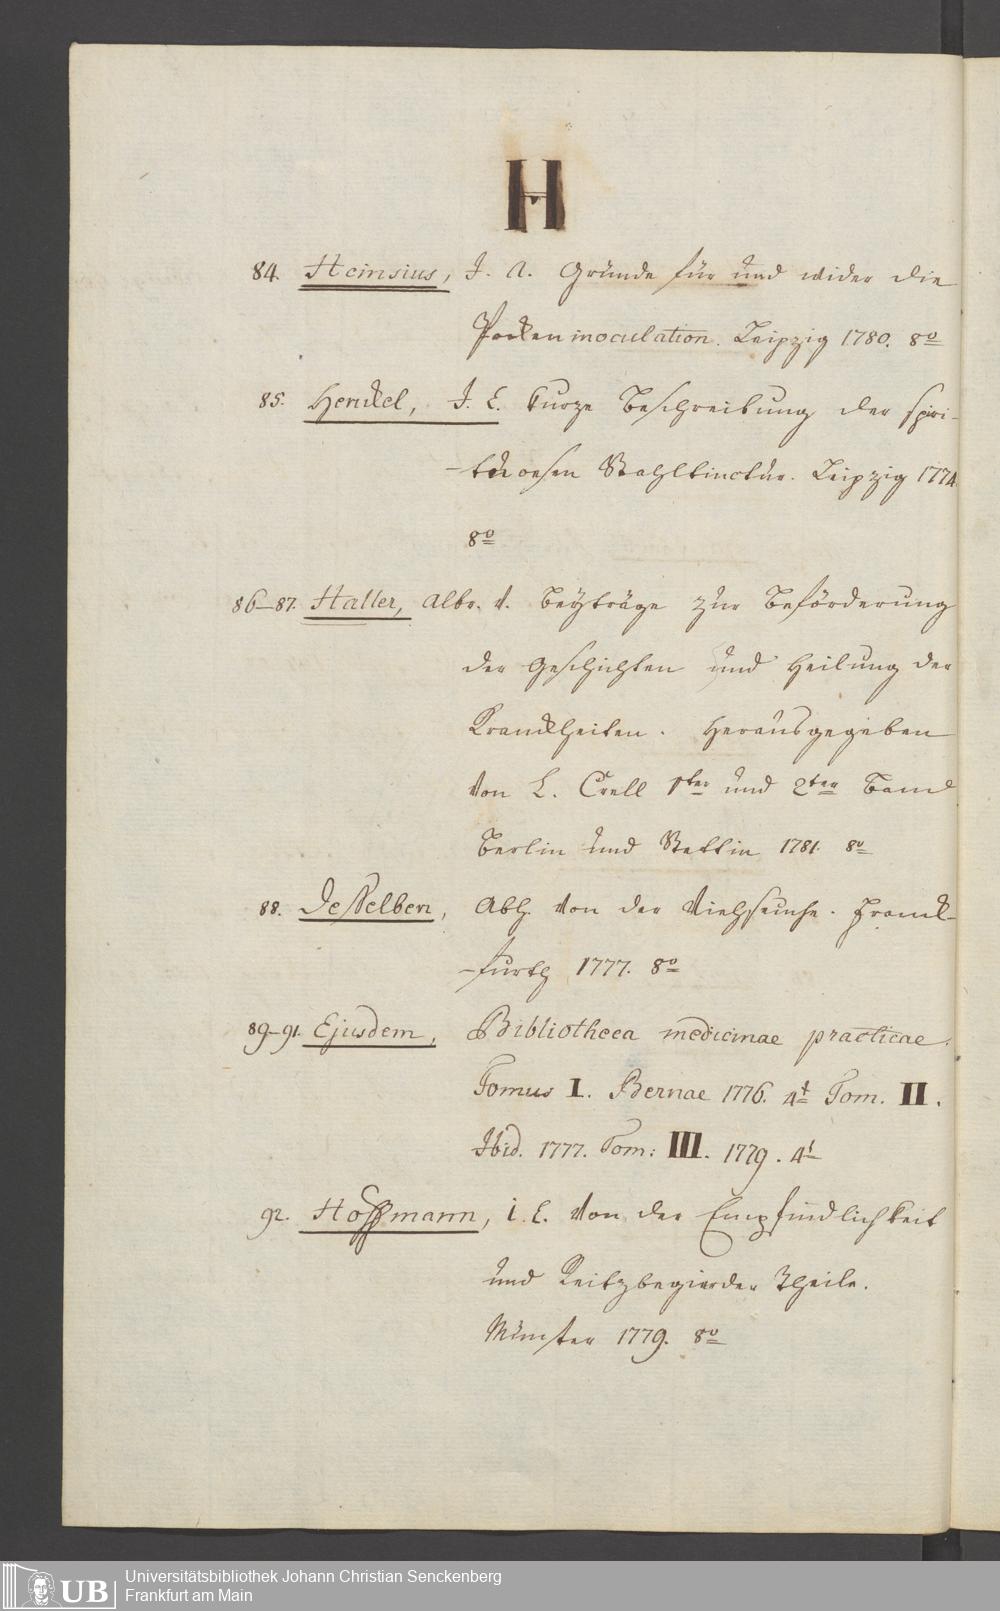 H
84. Heinsius, J. A. Gründe für und wider die
Pocken inoculation. Leipzig 1780. 8º
85. Henckel, J. E. kurze Beschreibung der spiri-
-tuoesen Stahltinctur. Leipzig 1774.
8º
86-87. Haller, Albr. v. Beyträge zur Beförderung
der Geschichten und Heilung der
Kranckheiten. Herausgegeben
von L. Crell 1ter und 2ter Band
Berlin und Stettin 1781. 8º
88. Desselben, Abh. von der Viehseuche. Franck-
-furth 1777. 8º
89-91. Ejusdem, Bibliotheca medicinae practicae.
Tomus I. Bernae 1776. 4t Tom. II.
Ibid. 1777. Tom: III. 1779. 4t
92. Hoffmann, C. L. Von der Empfindlichkeit
und Reitzbegierder Theile.
Münster 1779. 8º
UB
Universitätsbibliothek Johann Christian Senckenberg
Frankfurt am Main